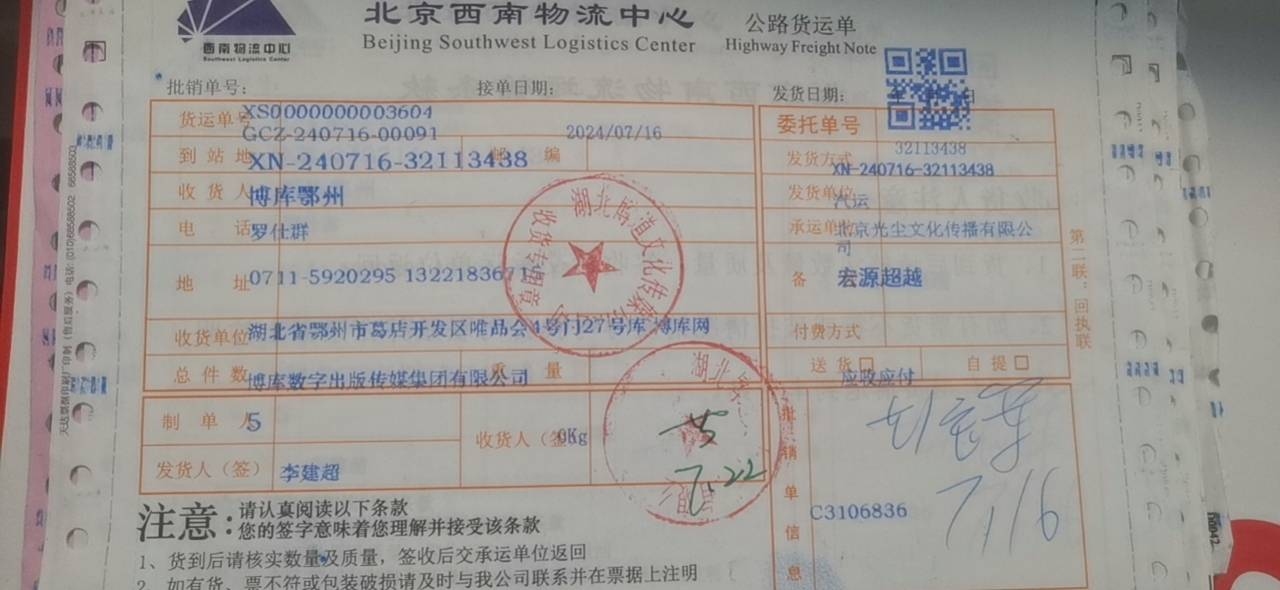 西南物流中心
Southwest Logistics Center
北京西南物流中心
Beijing Southwest Logistics Center
公路货运单
Highway Freight Note
批销单号：
接单日期：
发货日期：
年 月 日
货运单号
XS0000000003604
GCZ-240716-00091
2024/07/16
委托单号
到站地
XN-240716-32113438
邮编
发货方式
32113438
XN-240716-32113438
收货人
博库鄂州
发货单位
汽运
电话
罗仕群
承运单位
北京光尘文化传播有限公司
地址
0711-5920295 132218367
备
宏源超越
收货单位
湖北省鄂州市葛店开发区唯品会4号门27号库 博库网
付费方式
总件数
博库数字出版传媒集团有限公司
质量
送货□
自提□
应收应付
制单人
5
收货人（签）
0Kg
批销单信息
发货人（签）
李建超
7.22
7/16
C3106836
收货专用章
注意：
请认真阅读以下条款
您的签字意味着您理解并接受该条款
1、货到后请核实数量及质量，签收后交承运单位返回
2、如有货、票不符或包装破损请及时与我公司联系并在票据上注明
第二联：回执联